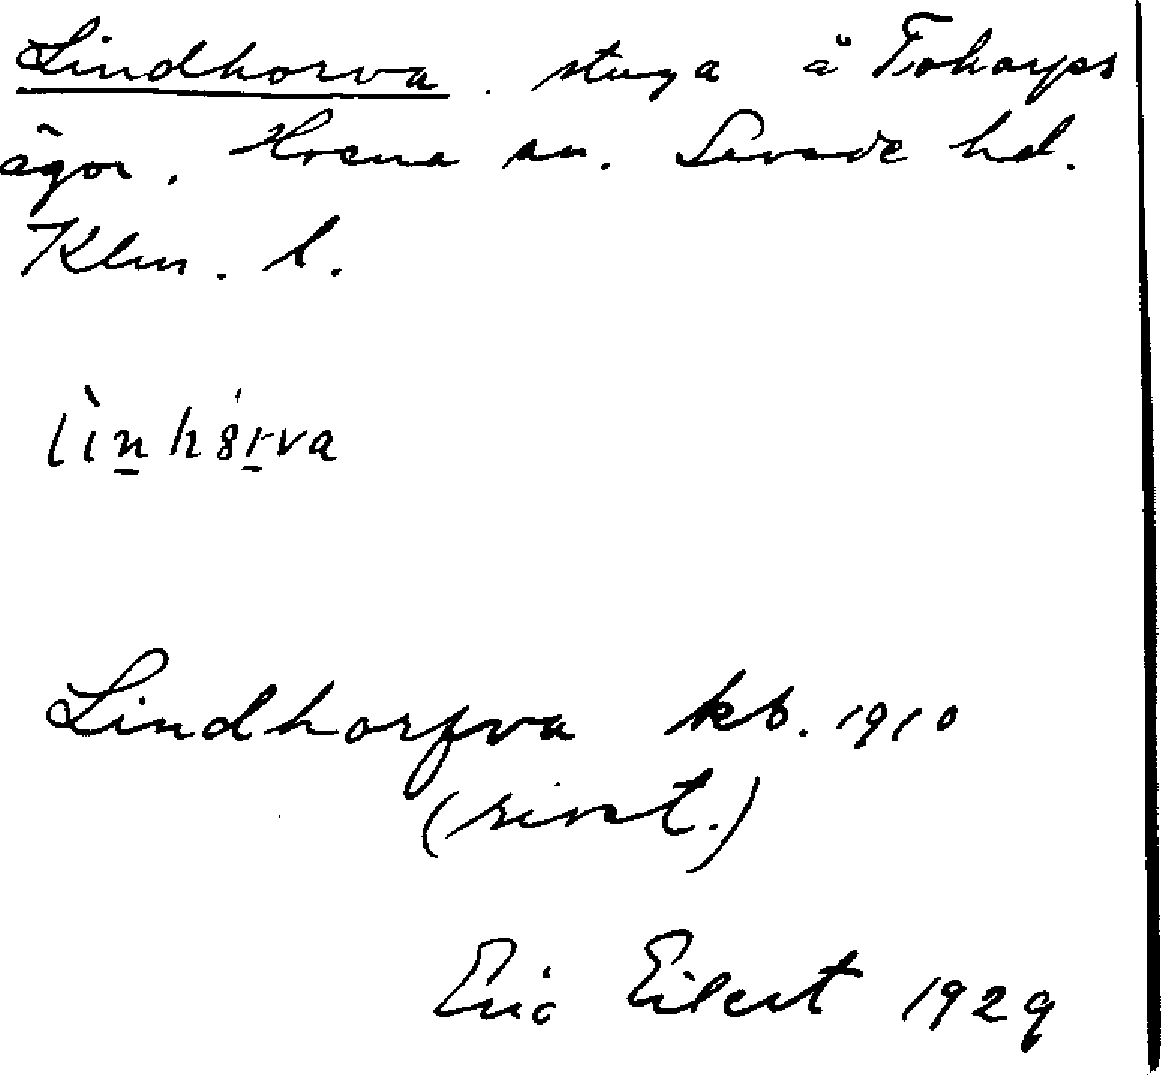 Lindhorva. stuga å Tokarps
ägor. Korsna sn. Sevede hd.
Klm. l.
lìnhörva
Lindhorfva kb. 1910
(rivet.)
Eric Eilert 1929